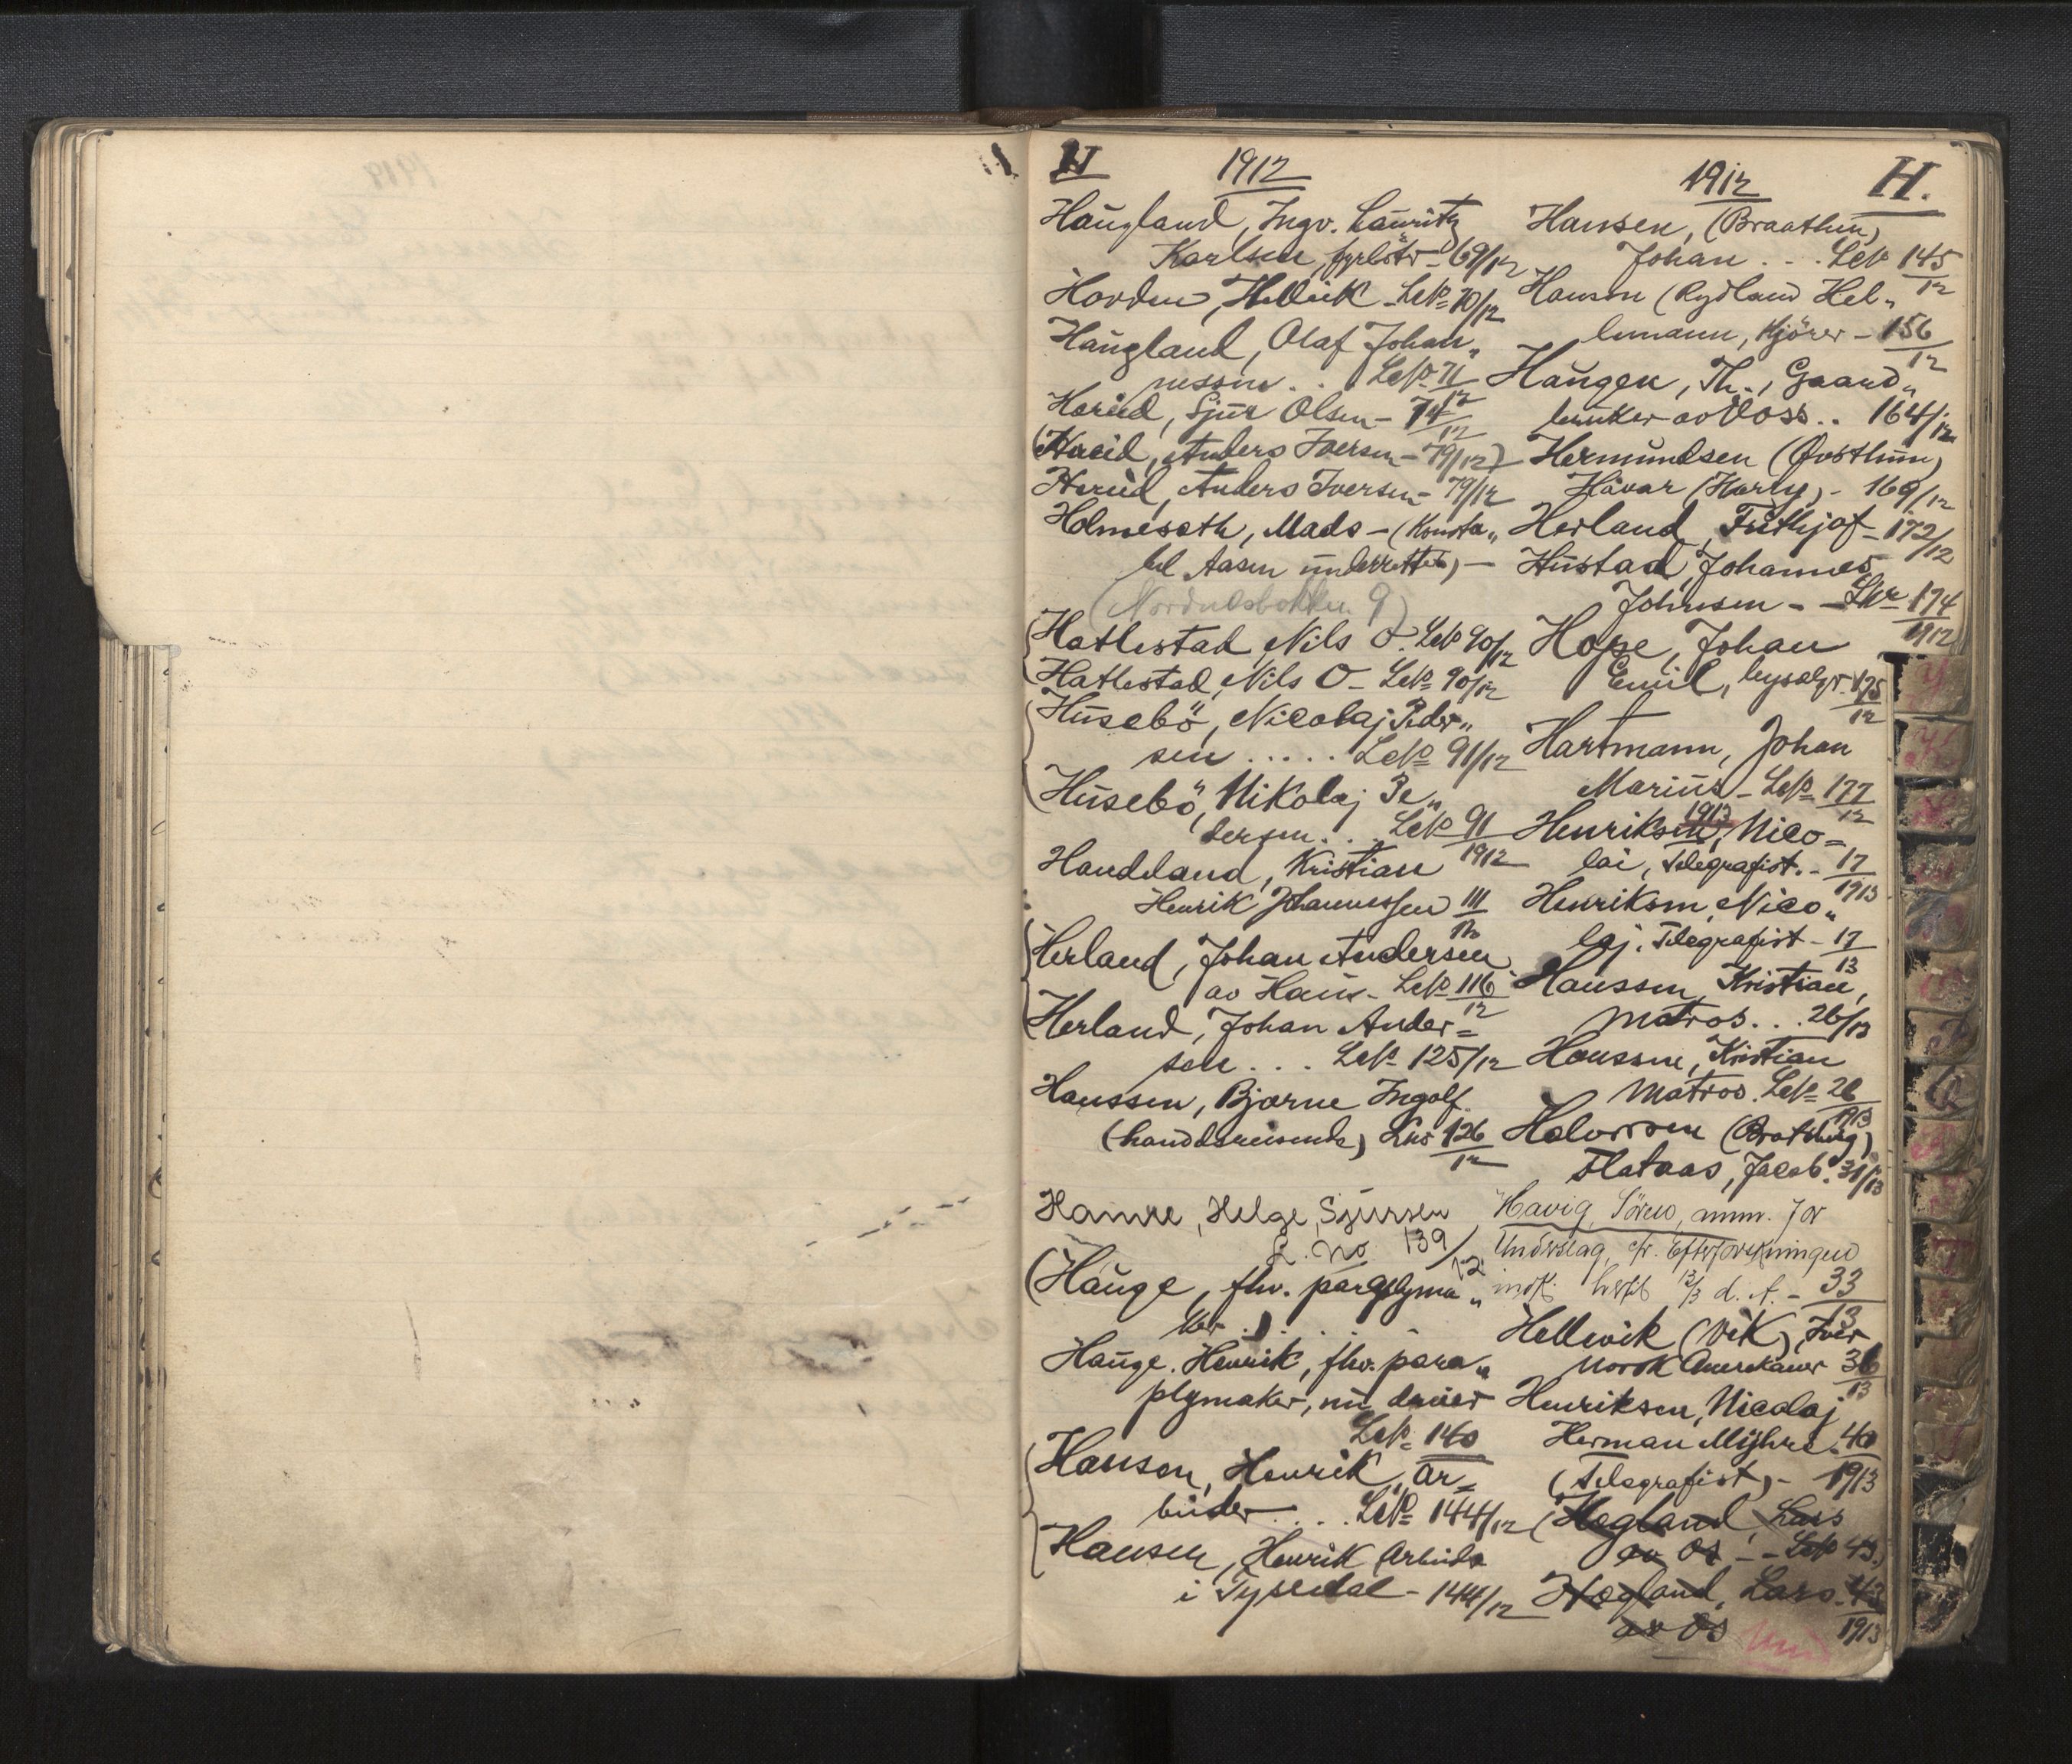 H 1912
Haugland, Ingv. Lauritz
Karlsen, fyrbötr - 69/12
Hovden, Hellik - LNo 70/12
Haugland, Olaf Johan„
nessen . . LNo 71/12
Hereid, Sjur Olsen - 74/12
(Hereid, Anders Iversen - 79/12)
Hereid, Anders Iversen - 79/12
Holmeseth, Mads - (Konsta„
bel Aasen underrettes) -
(Nordnesbakken 9)
(Hatlestad, Nils O. LNo 90/12
(Hatlestad, Nils O - LNo 90/12
(Husebö, Nicolaj Peder„
sen . . . . . LNo 91/12
(Husebö, Nikolaj Pe„
dersen . . . LNo 91/1912
Handeland, Kristian
Henrik Johannessen 111/12
(Herland, Johan Andersen
av Haus - LNo 116/12
(Herland, Johan Ander=
sen . . . LNo 125/12
Hanssen, Bjarne Ingolf
(handelsreisende) LNo 126/12
Hamre, Helge Sjursen
L. No 139/12
(Hauge, fhv. paraplyma„
ker . ) . . .
Hauge, Henrik, fhv. para„
plymaker, nu driver
LNo 140
(Hansen, Henrik, ar=
beider . . . . LNo 144/12
(Hansen, Henrik Arbeider
i Tyssedal - 144/12
1912 H.
Hansen, (Braathen)
Johan . . . LNo 145/12
Hansen (Rydland Hel„
lemann, Kjörer - 156/12
Haugen, Th., Gaard„
bruker av Voss . . 164/12
Hermundsen (Øvsthun)
Håvar (Harry) - 169/12
Herland, Frithjof - 172/12
Hustad, Johannes
Johnsen - - LNr 174/1912
Hope, Johan
Emil, bysælgr. 175/12
Hartmann, Johan
Marius - LNo 177/12
1913
Henriksen, Nico=
lai, Telegrafist. - 17/1913
Henriksen, Nico„
laj. Telegrafist - 17/13
Hanssen, Kristian,
Matros . . . 26/13
Hanssen, Kristian
Matros. LNo 26/1913
Halvorsen (Bratberg)
Flataas, Jacob. 31/13
Havig, Sören, anm. for
Underslag, cfr. Efterforskningen
indk. 13/3 d. A. - 33/13
Hellevik (Vik), Iver
Norsk Amerikaner 36/13
Henriksen, Nicolaj
Herman Myhre. 40/1913
(Telegrafist) -
(Høgland, Lars
av Os - - LNo 43.)
Høgland, Lars. 43/1913
av Os